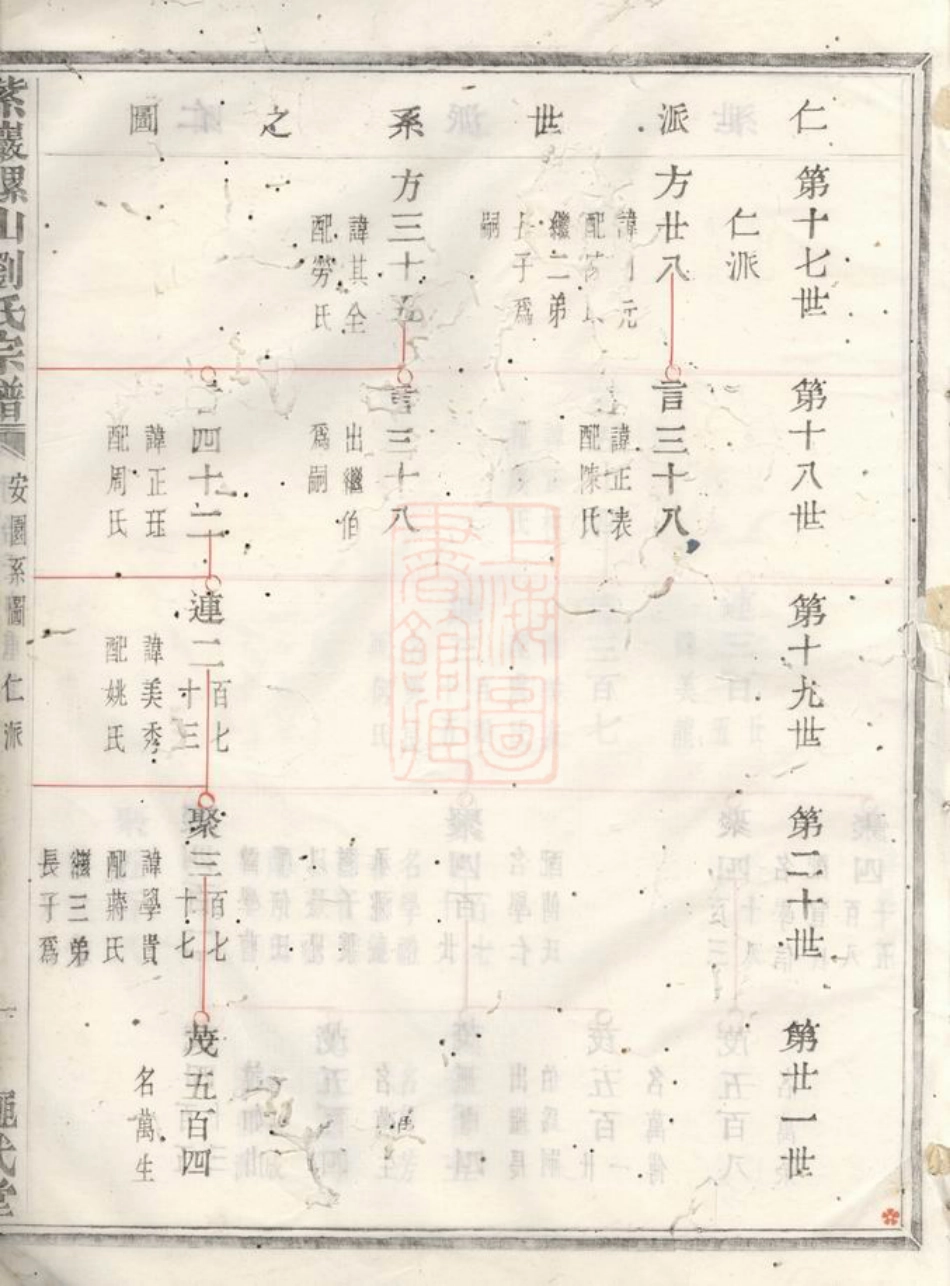 仁派世系之圖
第十七世
仁派
方廿八
諱元
配
繼二弟
子爲
嗣
方三十五
諱其全
配勞氏
第十八世
言三十八
諱正表
配陳氏
言三十八
出繼伯
爲嗣
四十二
諱正珏
配周氏
第十九世
連二百七十三
諱美秀
配姚氏
第二十世
聚三百七十七
諱學貴
配蔣氏
繼三弟
長子爲
第廿一世
茂五百四
名萬生
紫巖騾山劉氏宗譜
安園系圖
仁派
一
上海圖書館藏